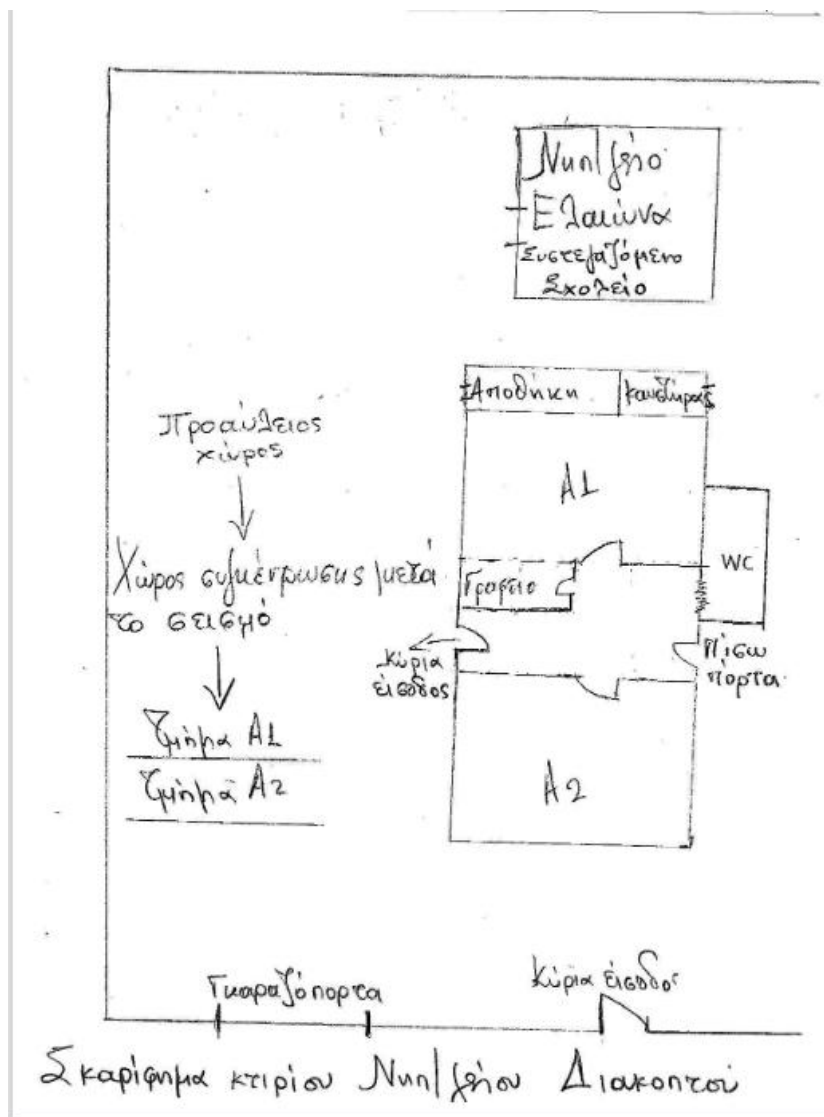 Νηπ/γείο
Ελαιώνα
Συστεγαζόμενο
Σχολείο
Αποθήκη
καυστήρας
Προαύλειος
χώρος
Α1
WC
Χώρος συγκέντρωσης μετά
το σεισμό
Γραφείο
Κύρια
είσοδος
Πίσω
πόρτα
Τμήμα Α1
Τμήμα Α2
Α2
Γκαραζόπορτα
Κύρια είσοδος
Σκαρίφημα κτιρίου Νηπ/γείου Διακοπτού